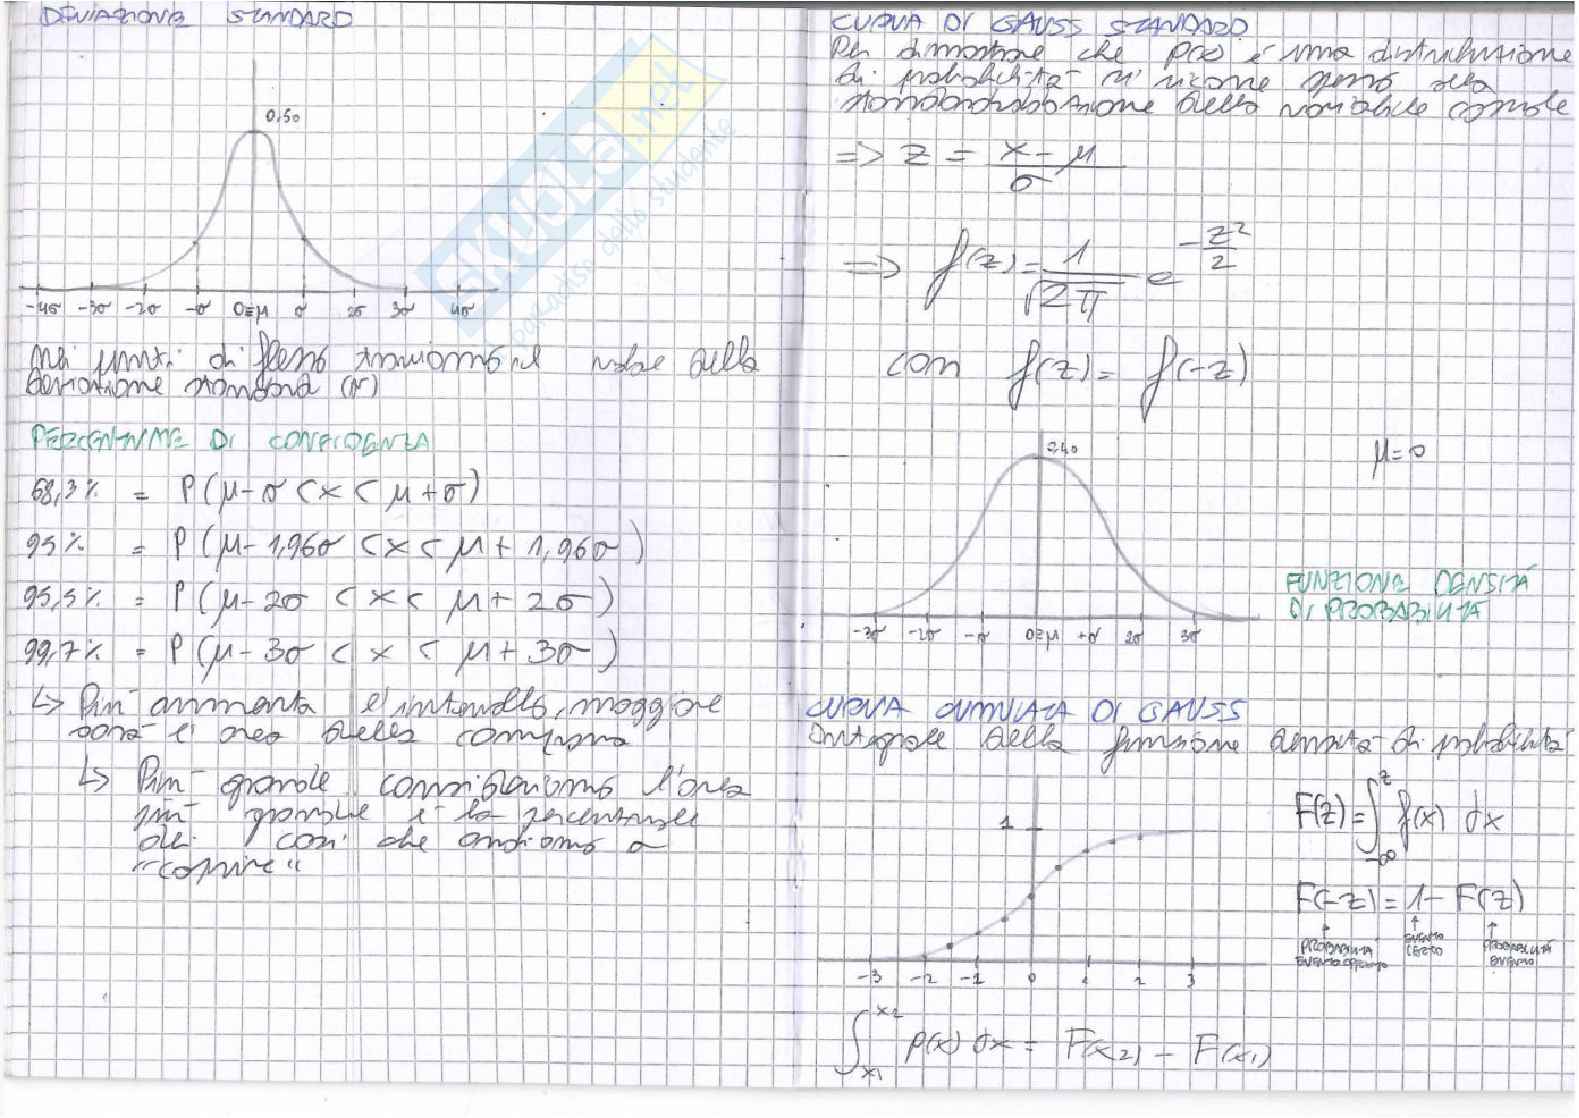 DEVIAZIONE STANDARD
0,50
-4σ -3σ -2σ -σ 0≡μ σ 2σ 3σ 4σ
Nei punti di flesso troviamo il valore della
deviazione standard (σ)
PERCENTUALE DI CONFIDENZA
68,3% = P(μ-σ < x < μ+σ)
95% = P(μ-1,96σ < x < μ+1,96σ)
95,5% = P(μ-2σ < x < μ+2σ)
99,7% = P(μ-3σ < x < μ+3σ)
↳ Più aumenta l'intervallo, maggiore
sarà l'area della campana
↳ Più grande consideriamo l'area
più grande è la percentuale
dei casi che andiamo a
"coprire"
SKUOLA.net
paradiso dello studente
CURVA DI GAUSS STANDARD
Per dimostrare che p(x) è una distribuzione
di probabilità si ricorre spesso alla
standardizzazione della variabile casuale
=> z = x-μ / σ
=> f(z) = 1/√2π e^-z²/2
con f(z) = f(-z)
0,40
μ=0
-3σ -2σ -σ 0≡μ +σ 2σ 3σ
FUNZIONE DENSITÁ
DI PROBABILITÁ
CURVA CUMULATA DI GAUSS
Integrale della funzione densità di probabilità
1
F(z) = ∫_-∞^z f(x) dx
F(-z) = 1 - F(z)
PROBABILITÁ EVENTO CERTO PROBABILITÁ EVENTO
-3 -2 -1 0 1 2 3
∫_x1^x2 p(x) dx = F(x2) - F(x1)